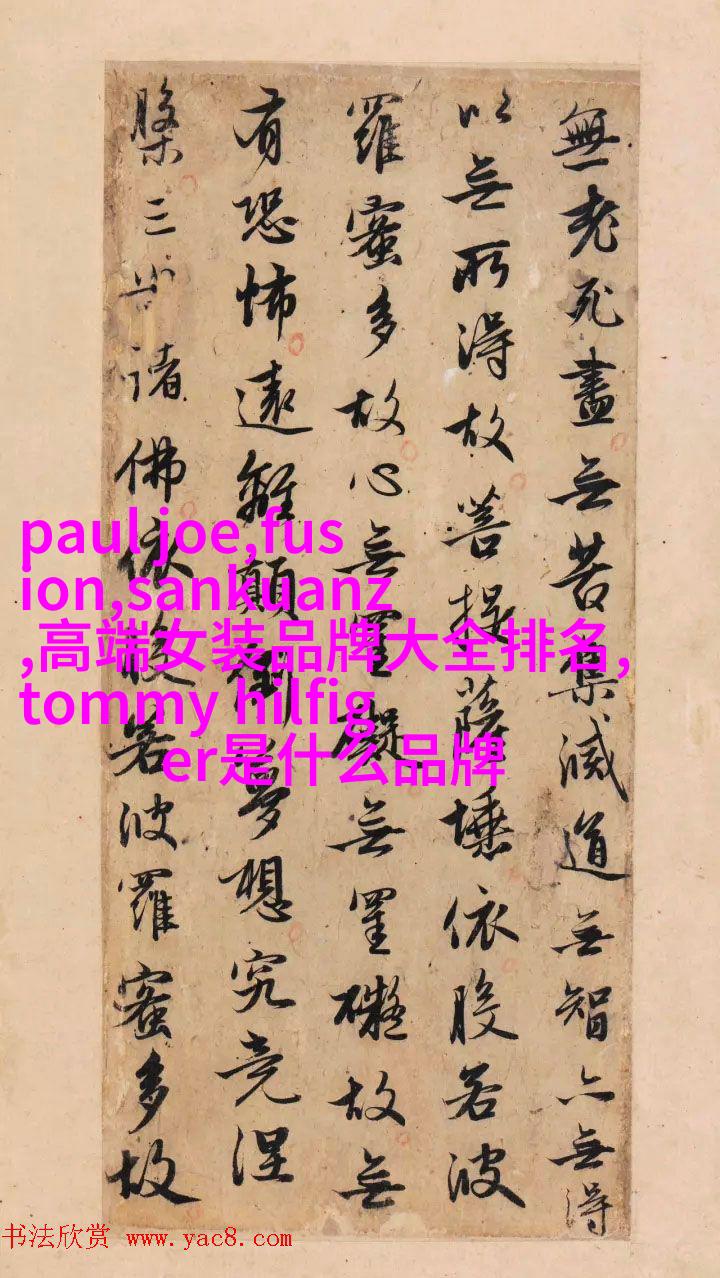 無老死盡无苦集滅道无智亦无得
以无所得故菩提薩埵依般若波
羅蜜多故心无罣礙无罣礙故无
有恐怖遠離顛倒夢想究竟涅
槃三世諸佛依般若波羅蜜多故
paul joe,fus
ion,sankuanz
,高端女装品牌大全排名,
tommy hilfig
er是什么品牌
书法欣赏 www.yac8.com